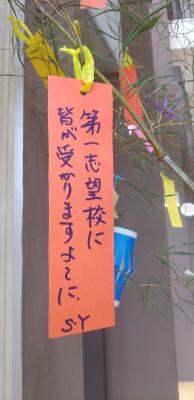 第一志望校に
皆が受かりますよに、
S.Y